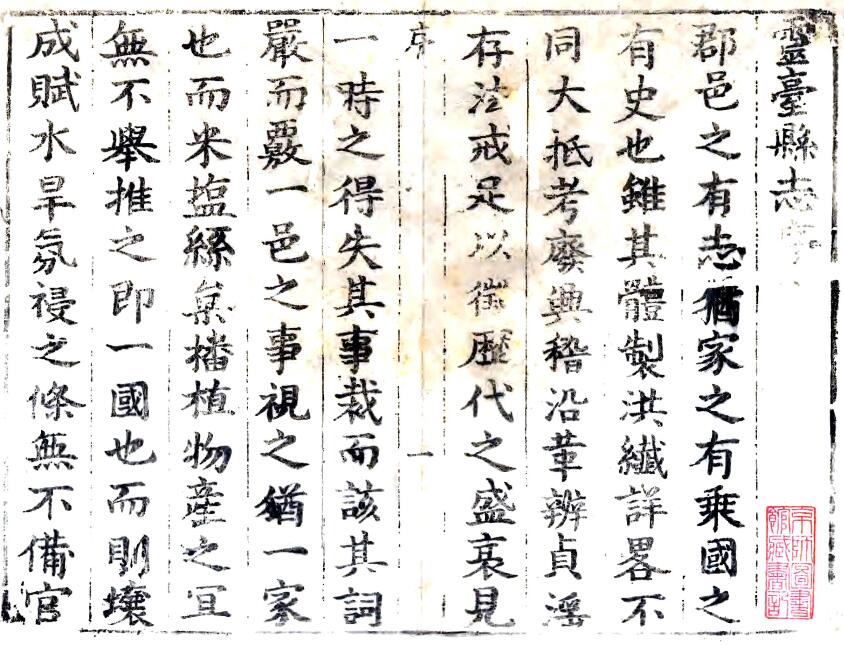 靈臺縣志序
郡邑之有志猶家之有乗國之
有史也雖其體製洪纖詳畧不
同大抵考廢興稽沿革辨貞淫
存法戒足以徵歷代之盛衰見
序 一
一時之得失其事裁而該其詞
嚴而覈一邑之事視之猶一家
也而米鹽絲枲播植物產之宜
無不舉推之即一國也而則壤
成賦水旱氛祲之條無不備官
京師圖書
館藏書記